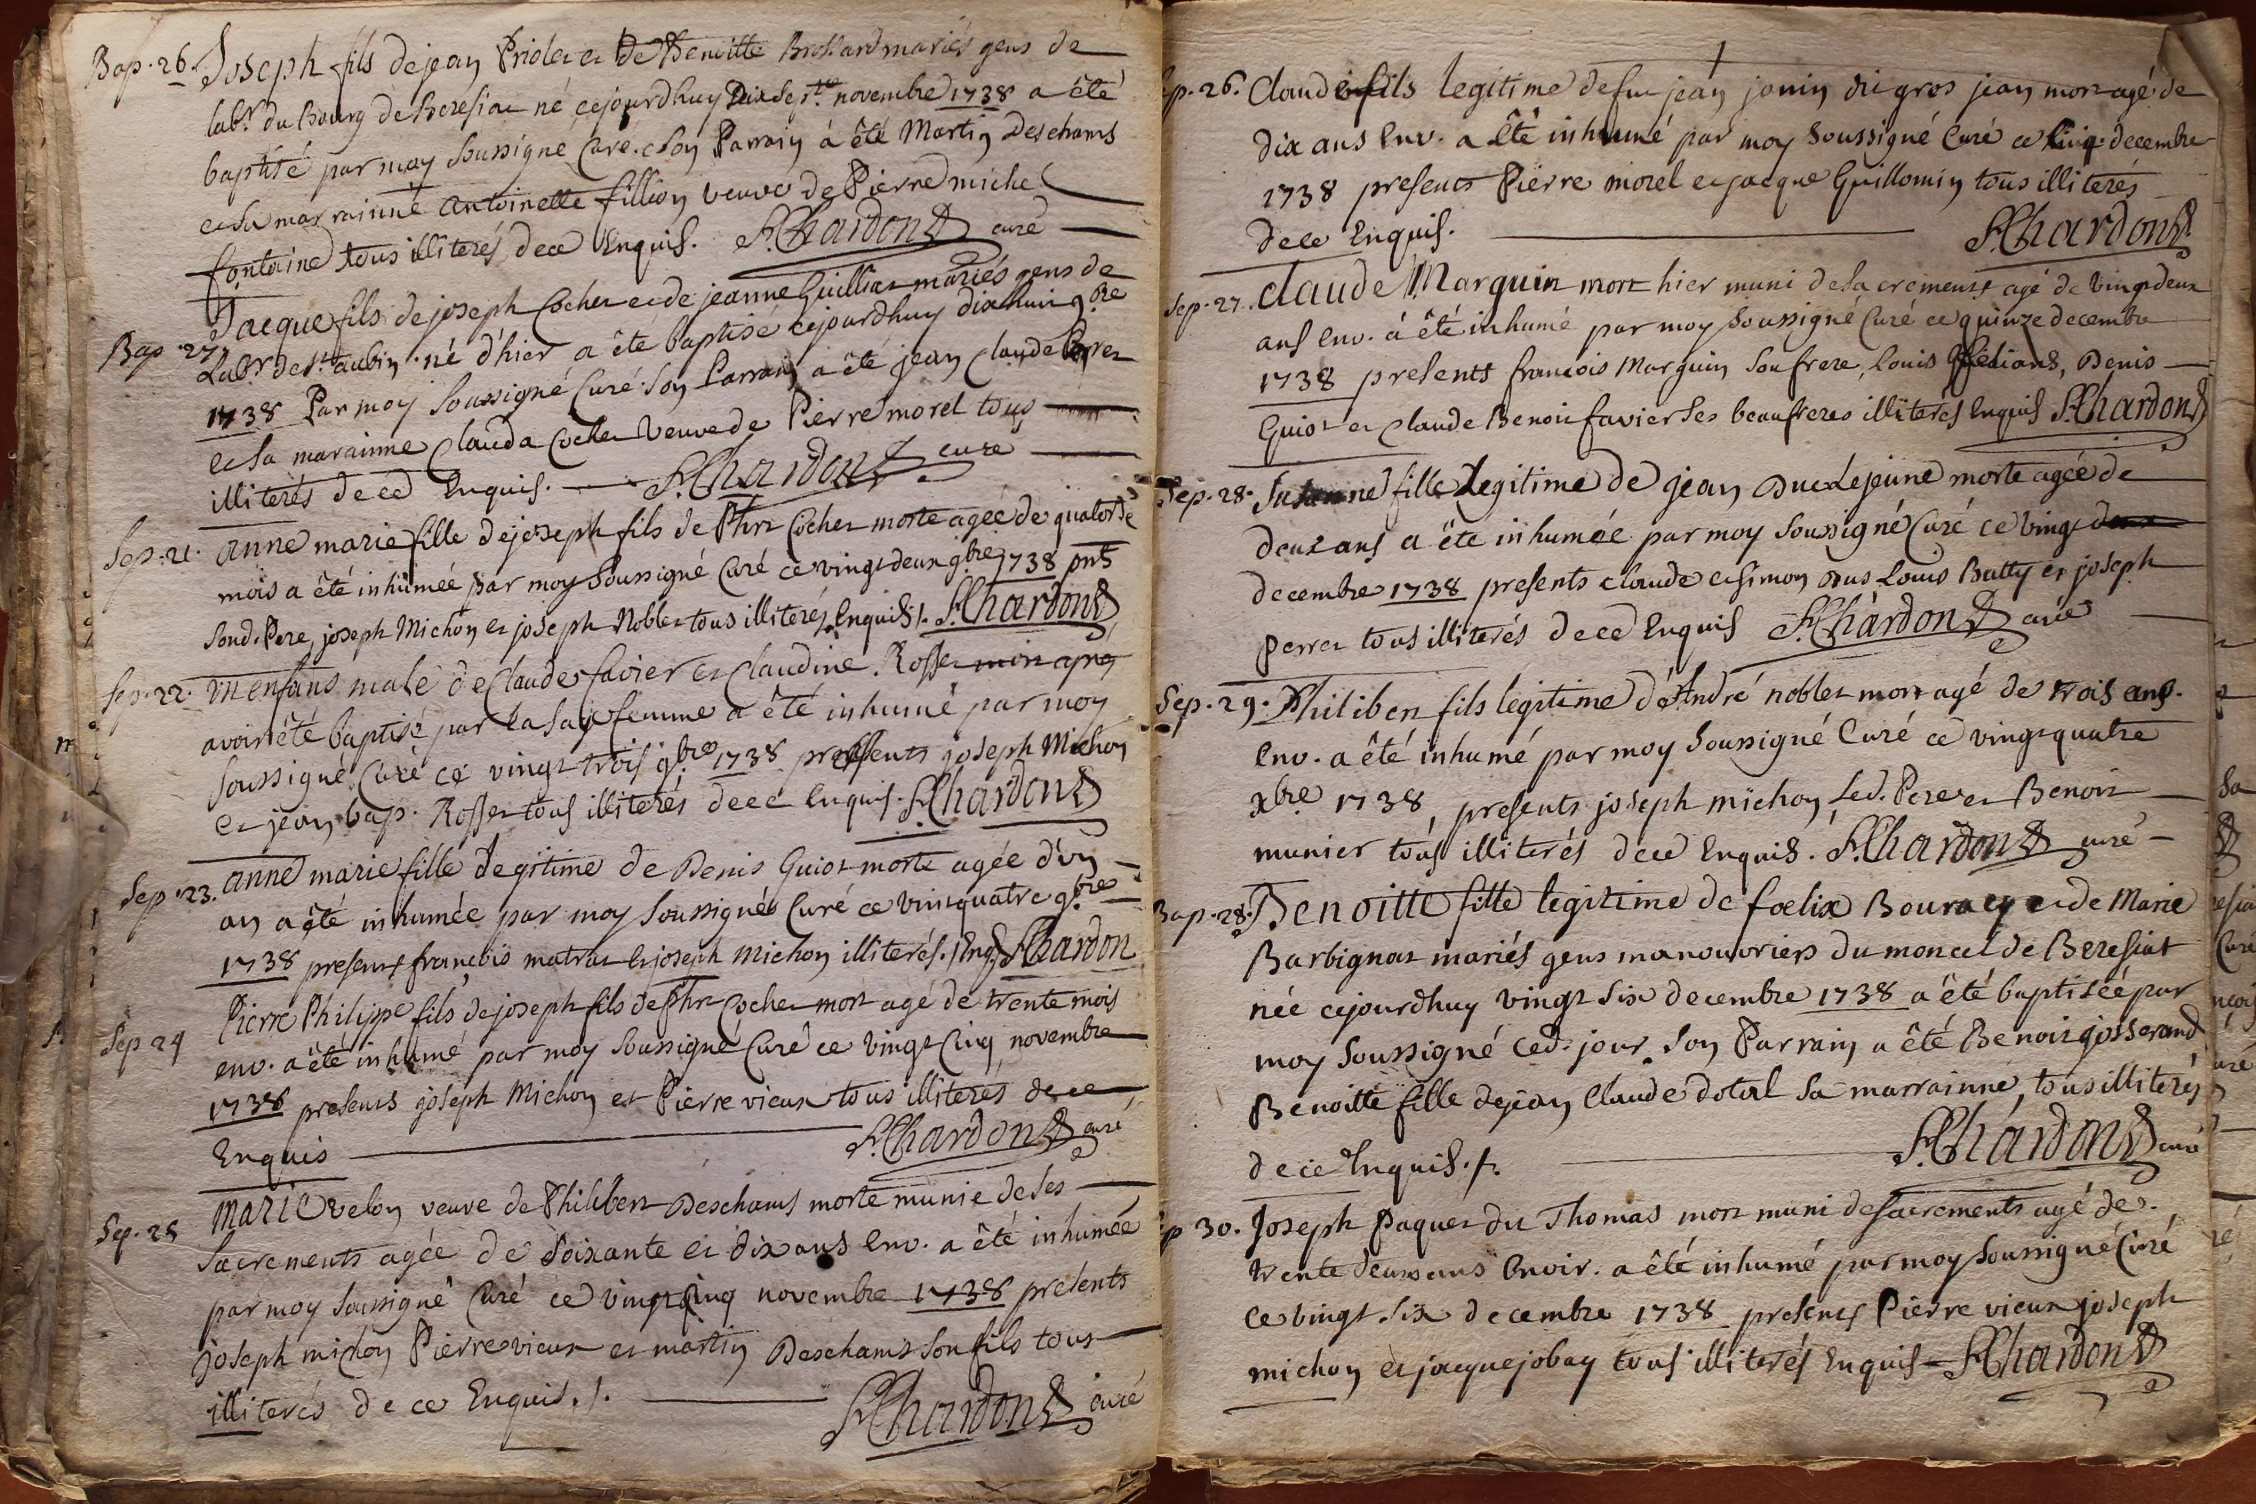 Bap. 26. Joseph fils de jean Priolet et de Benoitte Brossard mariés gens de
labr. du Bourg de Beresiat né cejourdhuy dixsept novembre 1738 a êté
baptisé par moy soussigné Curé. Son Parrain à êté Martin Deschams
et sa marrainne antoinette fillion veuve de Pierre michel
fontaine tous illiterés de ce Enquis. Chardon curé
Bap. 27 Jacque fils de joseph Cochet et de jeanne Guilliat mariés gens de
Labr. de st. aubin né d'hier a êté baptisé cejourdhuy dixhuit 9bre
1738 Par moy soussigné Curé. son Parrain a êté jean claude
et sa marainne clauda Cochet veuve de Pierre morel tous
illiterés de ce Enquis. Chardon curé
Sep. 21. anne marie fille de joseph fils de Phrt Cochet morte agée de quatorse
mois a êté inhumée par moy soussigné Curé ce vingt deux 9bre 1738 pnts
sond. Pere, joseph Michon et joseph Noblet tous illiterés Enquis /. Chardon
Sep. 22. un enfans male de Claude favier et Claudine Rosset mort aprés
avoir êté baptisé par la sage femme a êté inhumé par moy
soussigné Curé ce vingt trois 9bre 1738 presents joseph Michon
et jean bap. Rosset tous illiterés de ce Enquis. Chardon
Sep. 23. anne marie fille legitime de Denis Guiot morte agée d'un
an a êté inhumée par moy soussigné Curé ce vintquatre 9bre
1738 presents françois matrat et joseph Michon illiterés. Enq. Chardon
Sep 24 Pierre Philippe fils de joseph fils de Phrt Cochet mort agé de trente mois
env. a êté inhumé par moy soussigné Curé ce vingt Cinq novembre
1738 presents joseph Michon et Pierre vieux tous illiterés de ce
Enquis Chardon curé
Sep. 25 Marie velon veuve de Philibert Deschams morte munie de ses
sacrements agée de soixante et dix ans Env. a êté inhumée
par moy soussigné Curé ce vingt Cinq novembre 1738 presents
joseph michon Pierre vieux et martin Deschams son fils tous
illiterés de ce Enquis. /. Chardon curé
Sep. 26. Claude fils legitime de feu jean janin dit gros jean mort agé de
dix ans Env. a êté inhumé par moy soussigné Curé ce Cinq decembre
1738 presents Pierre morel et jacque Guillomin tous illiterés
de ce Enquis. Chardon
Sep. 27. Claude Marguin mort hier muni de sacrements agé de vingt deux
ans Env. à êté inhumé par moy soussigné Curé ce quinze decembre
1738 presents francois Marguin son frere, Louis, Denis
Guiot et Claude Benoit favier ses beaufreres illiterés Enquis Chardon
Sep. 28. Susanne fille Legitime de jean Duc Lejeune morte agée de
deux ans a êté inhumée par moy soussigné Curé ce vingt
decembre 1738 presents claude et simon Louis Batty et joseph
perret tous illiterés de ce Enquis Chardon curé
Sep. 29. Philibert fils legitime d'André noblet mort agé de trois ans
Env. a êté inhumé par moy soussigné Curé ce vingt quatre
xbre 1738, presents joseph michon Led. Pere et Benoit
munier tous illiterés de ce Enquis. Chardon curé
Bap. 28. Benoitte fille legitime de foelix Bourney et de Marie
Barbignat mariés gens manouvriers du moncel de Beresiat
née cejourdhuy vingt six decembre 1738 a êté baptisée par
moy soussigné Ced. jour. Son Parrain a êté Benoit josserand
Benoitte fille de jean Claude dotal sa marrainne, tous illiterés
de ce Enquis. /. Chardon curé
Sep 30. Joseph Paquet dit Thomas mort muni de sacrements agé de
trente deux ans Envir. a êté inhumé par moy soussigné Curé
ce vingt six decembre 1738 presents Pierre vieux joseph
michon et jacque jobay tous illiterés Enquis Chardon